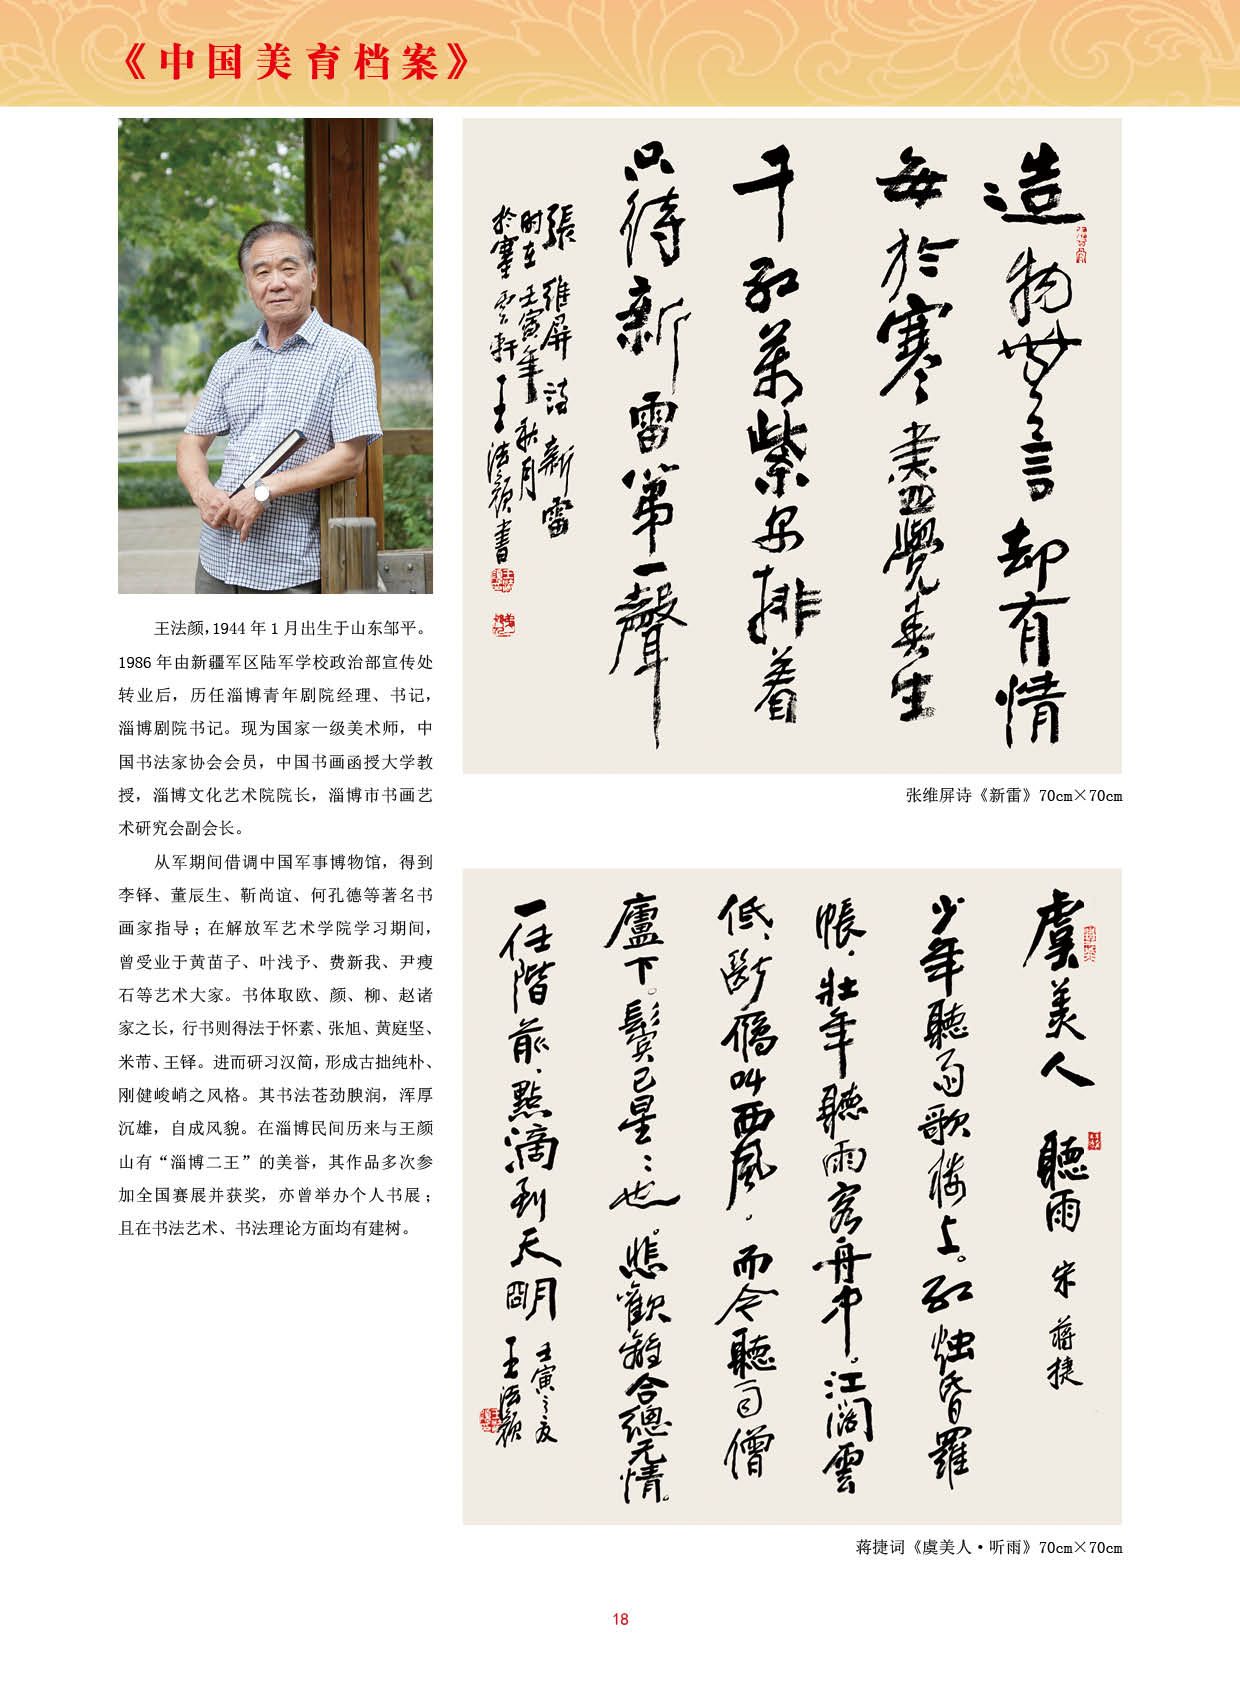 《中国美育档案》
王法颜，1944 年 1 月出生于山东邹平。
1986 年由新疆军区陆军学校政治部宣传处
转业后，历任淄博青年剧院经理、书记，
淄博剧院书记。现为国家一级美术师，中
国书法家协会会员，中国书画函授大学教
授，淄博文化艺术院院长，淄博市书画艺
术研究会副会长。
从军期间借调中国军事博物馆，得到
李铎、董辰生、靳尚谊、何孔德等著名书
画家指导；在解放军艺术学院学习期间，
曾受业于黄苗子、叶浅予、费新我、尹瘦
石等艺术大家。书体取欧、颜、柳、赵诸
家之长，行书则得法于怀素、张旭、黄庭坚、
米芾、王铎。进而研习汉简，形成古拙纯朴、
刚健峻峭之风格。其书法苍劲腴润，浑厚
沉雄，自成风貌。在淄博民间历来与王颜
山有“淄博二王”的美誉，其作品多次参
加全国赛展并获奖，亦曾举办个人书展；
且在书法艺术、书法理论方面均有建树。
造物无言却有情
每於寒盡覺春生
千紅萬紫安排着
只待新雷第一聲
張維屏詩新雷
时在壬寅年秋月
於寒雲軒王法顏書
张维屏诗《新雷》70cm×70cm
虞美人 聽雨 宋 蔣捷
少年聽雨歌楼上。紅燭昏羅
帳、壯年聽雨客舟中。江阔雲
低、斷雁叫西風。而今聽雨僧
廬下。鬓已星星也。悲歡離合總无情。
一任階前、點滴到天明
壬寅之夏
王法顏
蒋捷词《虞美人·听雨》70cm×70cm
18